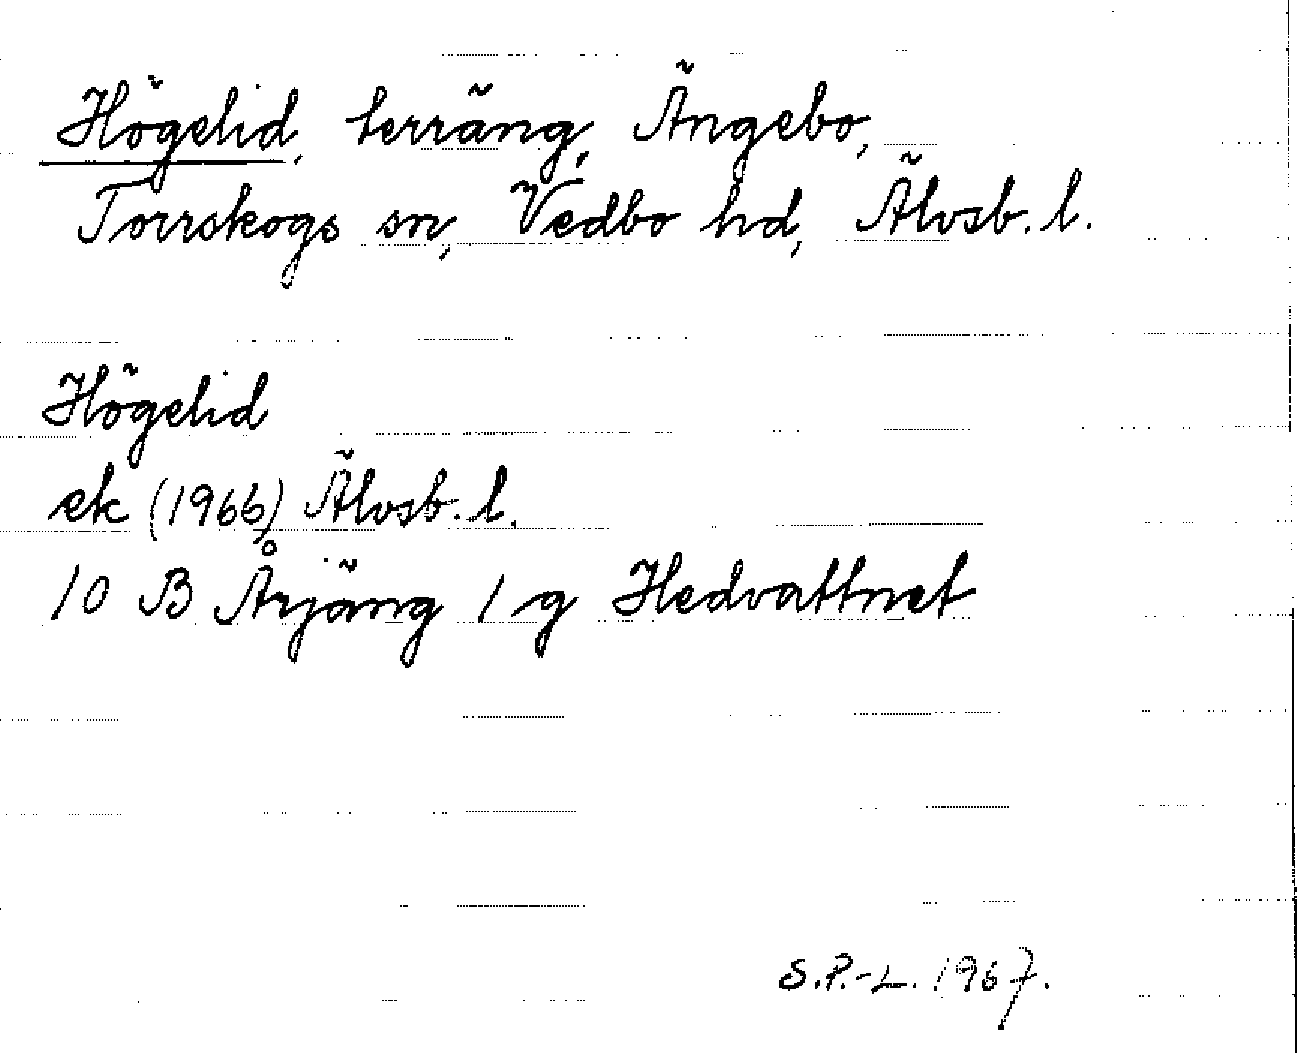 Högelid, terräng, Ängebo,
Torrskogs sn, Vedbo hd, Älvsb. l.
Högelid
ek (1966) Älvsb. l.
10 B Årjäng 1 g Hedvattnet
S.P.-L. 1967.